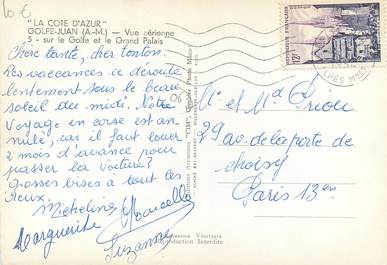 10 €
"LA COTE D'AZUR"
GOLFE-JUAN (A.-M.) — Vue aérienne
5 - sur le Golfe et le Grand Palais
Chère tante, cher tonton.
Les vaccances ce déroule
lentement sous le beau
soleil du midi. Notre
Voyage en corse est an-
nulé, car il faut louer
2 mois d'avance pour
passer la Voiture?
Grosses bises a tout les
deux.
Micheline Marcelle
Marguerite
Suzanne
06
Éditions Aériennes "CIM", Combier Photo Mâcon
Reproduction Interdite
POSTES
12F
M. et Md. Priou
29 av. de la porte de
choisy
Paris 13em